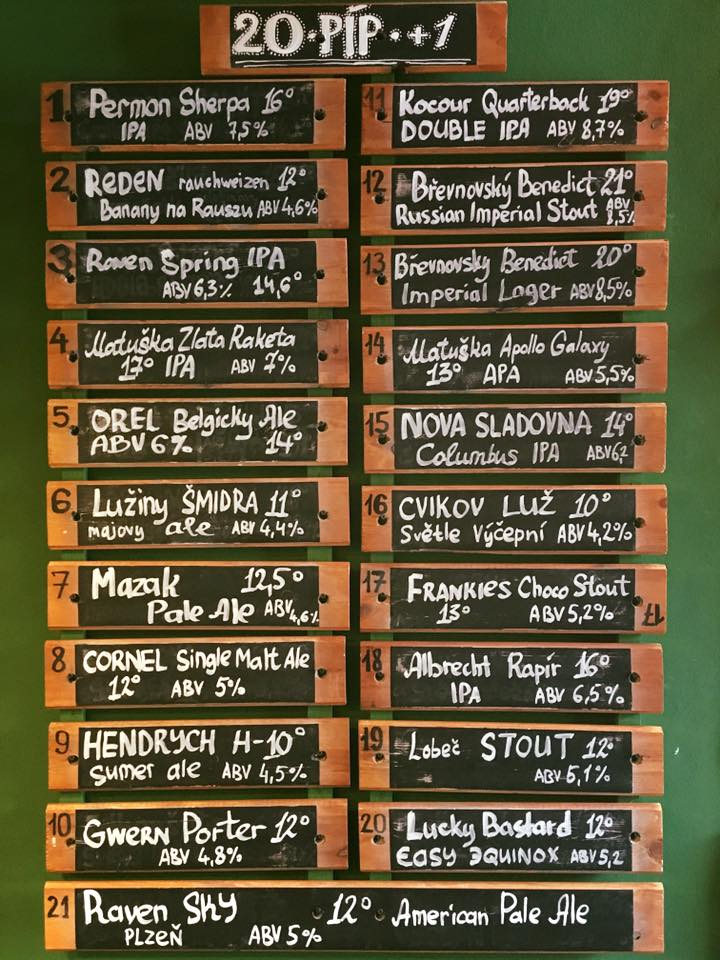 20·PÍP·+1
1 Permon Sherpa 16°
IPA ABV 7,5%
2 REDEN rauchweizen 12°
Banany na Rauszu ABV 4,6%
3 Raven Spring IPA
ABV 6,3% 14,6°
4 Matuška Zlata Raketa
17° IPA ABV 7%
5 OREL Belgicky Ale
ABV 6% 14°
6 Lužiny ŠMIDRA 11°
majovy ale ABV 4,4%
7 Mazak 12,5°
Pale Ale ABV 4,6%
8 CORNEL Single Malt Ale
12° ABV 5%
9 HENDRYCH H-10°
Sumer ale ABV 4,5%
10 GWERN Porter 12°
ABV 4,8%
11 Kocour Quarterback 19°
DOUBLE IPA ABV 8,7%
12 Břevnovský Benedict 21°
Russian Imperial Stout ABV 8,5%
13 Břevnovsky Benedict 20°
Imperial Lager ABV 8,5%
14 Matuška Apollo Galaxy
13° APA ABV 5,5%
15 NOVA SLADOVNA 14°
Columbus IPA ABV 6,2
16 CVIKOV LUŽ 10°
Světle Výčepní ABV 4,2%
17 FRANKIES Choco Stout
13° ABV 5,2% 17
18 Albrecht Rapír 16°
IPA ABV 6,5%
19 Lobeč STOUT 12°
ABV 5,1%
20 Lucky Bastard 12°
EASY EQUINOX ABV 5,2
21 Raven SKY 12° American Pale Ale
PLZEŇ ABV 5%